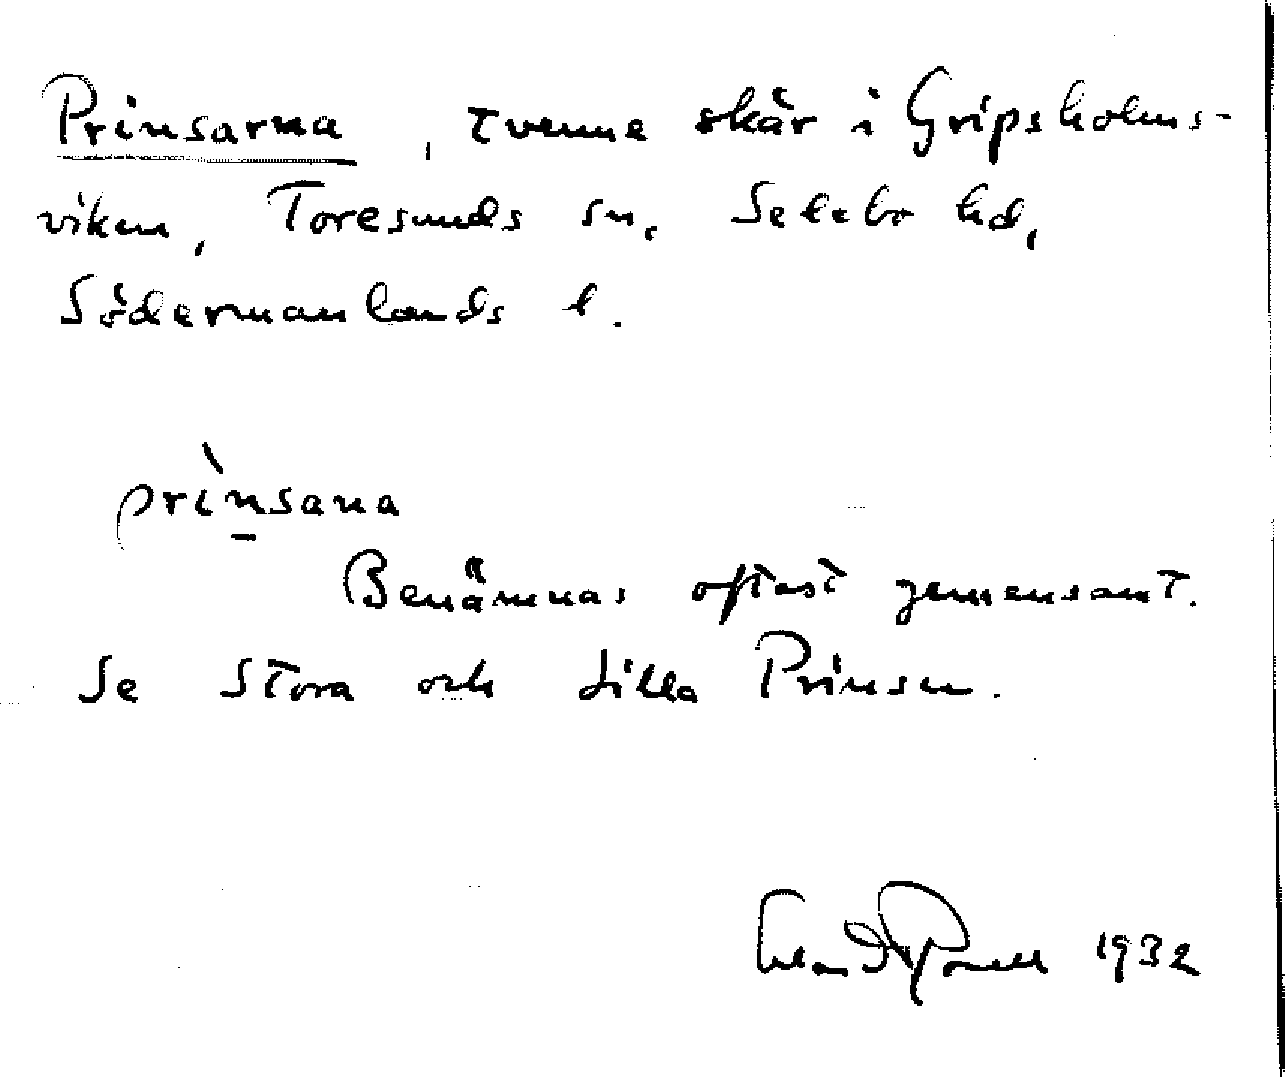 Prinsarna, tvenne skär i Gripsholms-
viken, Toresunds sn, Selebo hd,
Södermanlands l.
prìnsana
Benämnas oftast gemensamt.
Se Stora och Lilla Prinsen.
1932